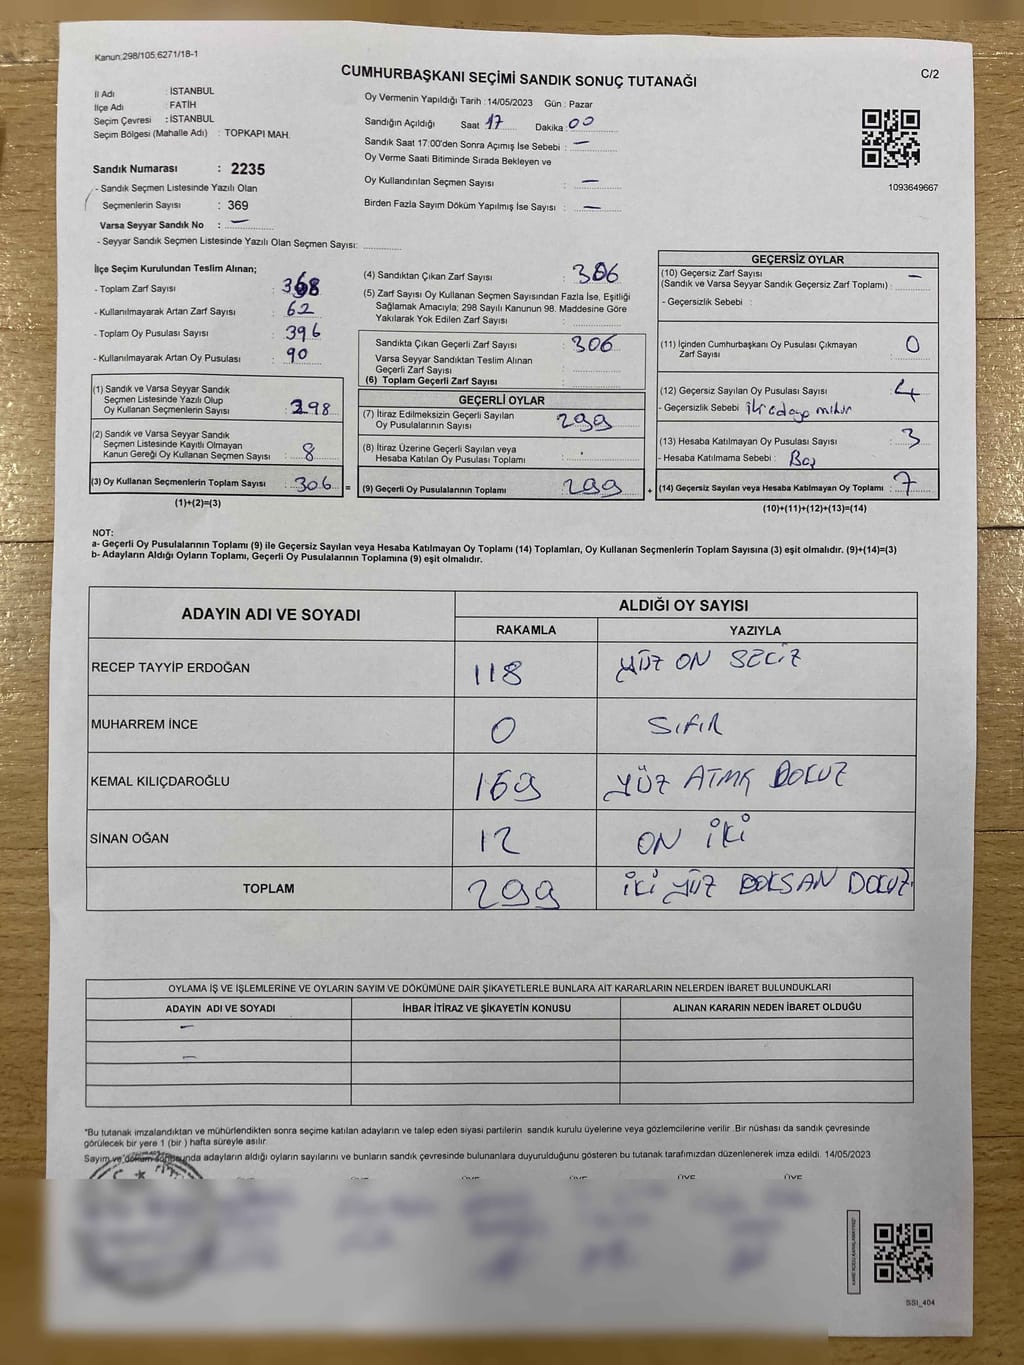 Kanun:298/105;6271/18-1
C/2
CUMHURBAŞKANI SEÇİMİ SANDIK SONUÇ TUTANAĞI
İl Adı : İSTANBUL
İlçe Adı : FATİH
Seçim Çevresi : İSTANBUL
Seçim Bölgesi (Mahalle Adı) : TOPKAPI MAH.
Sandık Numarası : 2235
- Sandık Seçmen Listesinde Yazılı Olan
Seçmenlerin Sayısı : 369
Varsa Seyyar Sandık No : —
- Seyyar Sandık Seçmen Listesinde Yazılı Olan Seçmen Sayısı:
Oy Vermenin Yapıldığı Tarih :14/05/2023 Gün : Pazar
Sandığın Açıldığı Saat 17 Dakika 00
Sandık Saat 17:00'den Sonra Açımış İse Sebebi : —
Oy Verme Saati Bitiminde Sırada Bekleyen ve
Oy Kullandırılan Seçmen Sayısı : —
Birden Fazla Sayım Döküm Yapılmış İse Sayısı : —
1093649667
İlçe Seçim Kurulundan Teslim Alınan;
- Toplam Zarf Sayısı : 368
- Kullanılmayarak Artan Zarf Sayısı : 62
- Toplam Oy Pusulası Sayısı : 396
- Kullanılmayarak Artan Oy Pusulası : 90
(1) Sandık ve Varsa Seyyar Sandık
Seçmen Listesinde Yazılı Olup
Oy Kullanan Seçmenlerin Sayısı : 298
(2) Sandık ve Varsa Seyyar Sandık
Seçmen Listesinde Kayıtlı Olmayan
Kanun Gereği Oy Kullanan Seçmen Sayısı : 8
(3) Oy Kullanan Seçmenlerin Toplam Sayısı : 306
(1)+(2)=(3)
(4) Sandıktan Çıkan Zarf Sayısı : 306
(5) Zarf Sayısı Oy Kullanan Seçmen Sayısından Fazla İse, Eşitliği
Sağlamak Amacıyla; 298 Sayılı Kanunun 98. Maddesine Göre
Yakılarak Yok Edilen Zarf Sayısı :
Sandıkta Çıkan Geçerli Zarf Sayısı : 306
Varsa Seyyar Sandıktan Teslim Alınan
Geçerli Zarf Sayısı :
(6) Toplam Geçerli Zarf Sayısı :
GEÇERLİ OYLAR
(7) İtiraz Edilmeksizin Geçerli Sayılan
Oy Pusulalarının Sayısı : 299
(8) İtiraz Üzerine Geçerli Sayılan veya
Hesaba Katılan Oy Pusulası Toplamı :
= (9) Geçerli Oy Pusulalarının Toplamı : 299
GEÇERSİZ OYLAR
(10) Geçersiz Zarf Sayısı —
(Sandık ve Varsa Seyyar Sandık Geçersiz Zarf Toplamı) :
- Geçersizlik Sebebi :
(11) İçinden Cumhurbaşkanı Oy Pusulası Çıkmayan
Zarf Sayısı : 0
(12) Geçersiz Sayılan Oy Pusulası Sayısı : 4
- Geçersizlik Sebebi : iki adaya mühür
(13) Hesaba Katılmayan Oy Pusulası Sayısı : 3
- Hesaba Katılmama Sebebi : Boş
+ (14) Geçersiz Sayılan veya Hesaba Katılmayan Oy Toplamı : 7
(10)+(11)+(12)+(13)=(14)
NOT:
a- Geçerli Oy Pusulalarının Toplamı (9) ile Geçersiz Sayılan veya Hesaba Katılmayan Oy Toplamı (14) Toplamları, Oy Kullanan Seçmenlerin Toplam Sayısına (3) eşit olmalıdır. (9)+(14)=(3)
b- Adayların Aldığı Oyların Toplamı, Geçerli Oy Pusulalarının Toplamına (9) eşit olmalıdır.
ADAYIN ADI VE SOYADI
ALDIĞI OY SAYISI
RAKAMLA YAZIYLA
RECEP TAYYİP ERDOĞAN 118 YÜZ ON SECİZ
MUHARREM İNCE 0 SIFIR
KEMAL KILIÇDAROĞLU 169 YÜZ ATMIŞ DOKUZ
SİNAN OĞAN 12 ON İKİ
TOPLAM 299 İKİ YÜZ DOKSAN DOKUZ
OYLAMA İŞ VE İŞLEMLERİNE VE OYLARIN SAYIM VE DÖKÜMÜNE DAİR ŞİKAYETLERLE BUNLARA AİT KARARLARIN NELERDEN İBARET BULUNDUKLARI
ADAYIN ADI VE SOYADI İHBAR İTİRAZ VE ŞİKAYETİN KONUSU ALINAN KARARIN NEDEN İBARET OLDUĞU
—
—
*Bu tutanak imzalandıktan ve mühürlendikten sonra seçime katılan adayların ve talep eden siyasi partilerin sandık kurulu üyelerine veya gözlemcilerine verilir .Bir nüshası da sandık çevresinde
görülecek bir yere 1 (bir ) hafta süreyle asılır.
Sayım ve döküm sonucunda adayların aldığı oyların sayılarını ve bunların sandık çevresinde bulunanlara duyurulduğunu gösteren bu tutanak tarafımızdan düzenlenerek imza edildi. 14/05/2023
ÜYE ÜYE ÜYE ÜYE ÜYE
SSI_404